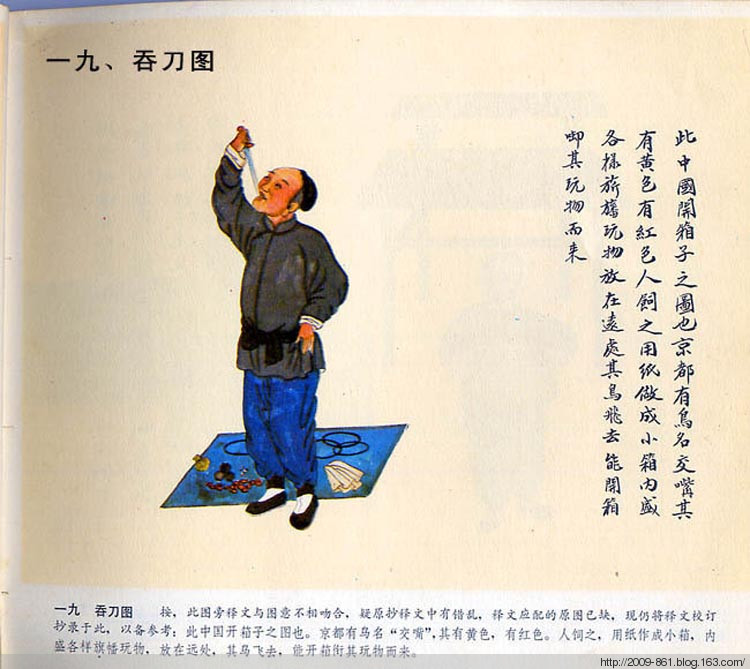 一九、吞刀图
此中國開箱子之圖也京都有鳥名交嘴其
有黄色有紅色人飼之用紙做成小箱内盛
各樣旂旛玩物放在遠處其鳥飛去能開箱
啣其玩物而来
一九 吞刀图 按，此图旁释文与图意不相吻合，疑原抄释文中有错乱，释文应配的原图已缺，现仍将释文校订
抄录于此，以备参考：此中国开箱子之图也。京都有鸟名“交嘴”，其有黄色，有红色。人饲之，用纸作成小箱，内
盛各样旗幡玩物，放在远处，其鸟飞去，能开箱衔其玩物而来。
http://2009-861.blog.163.com/